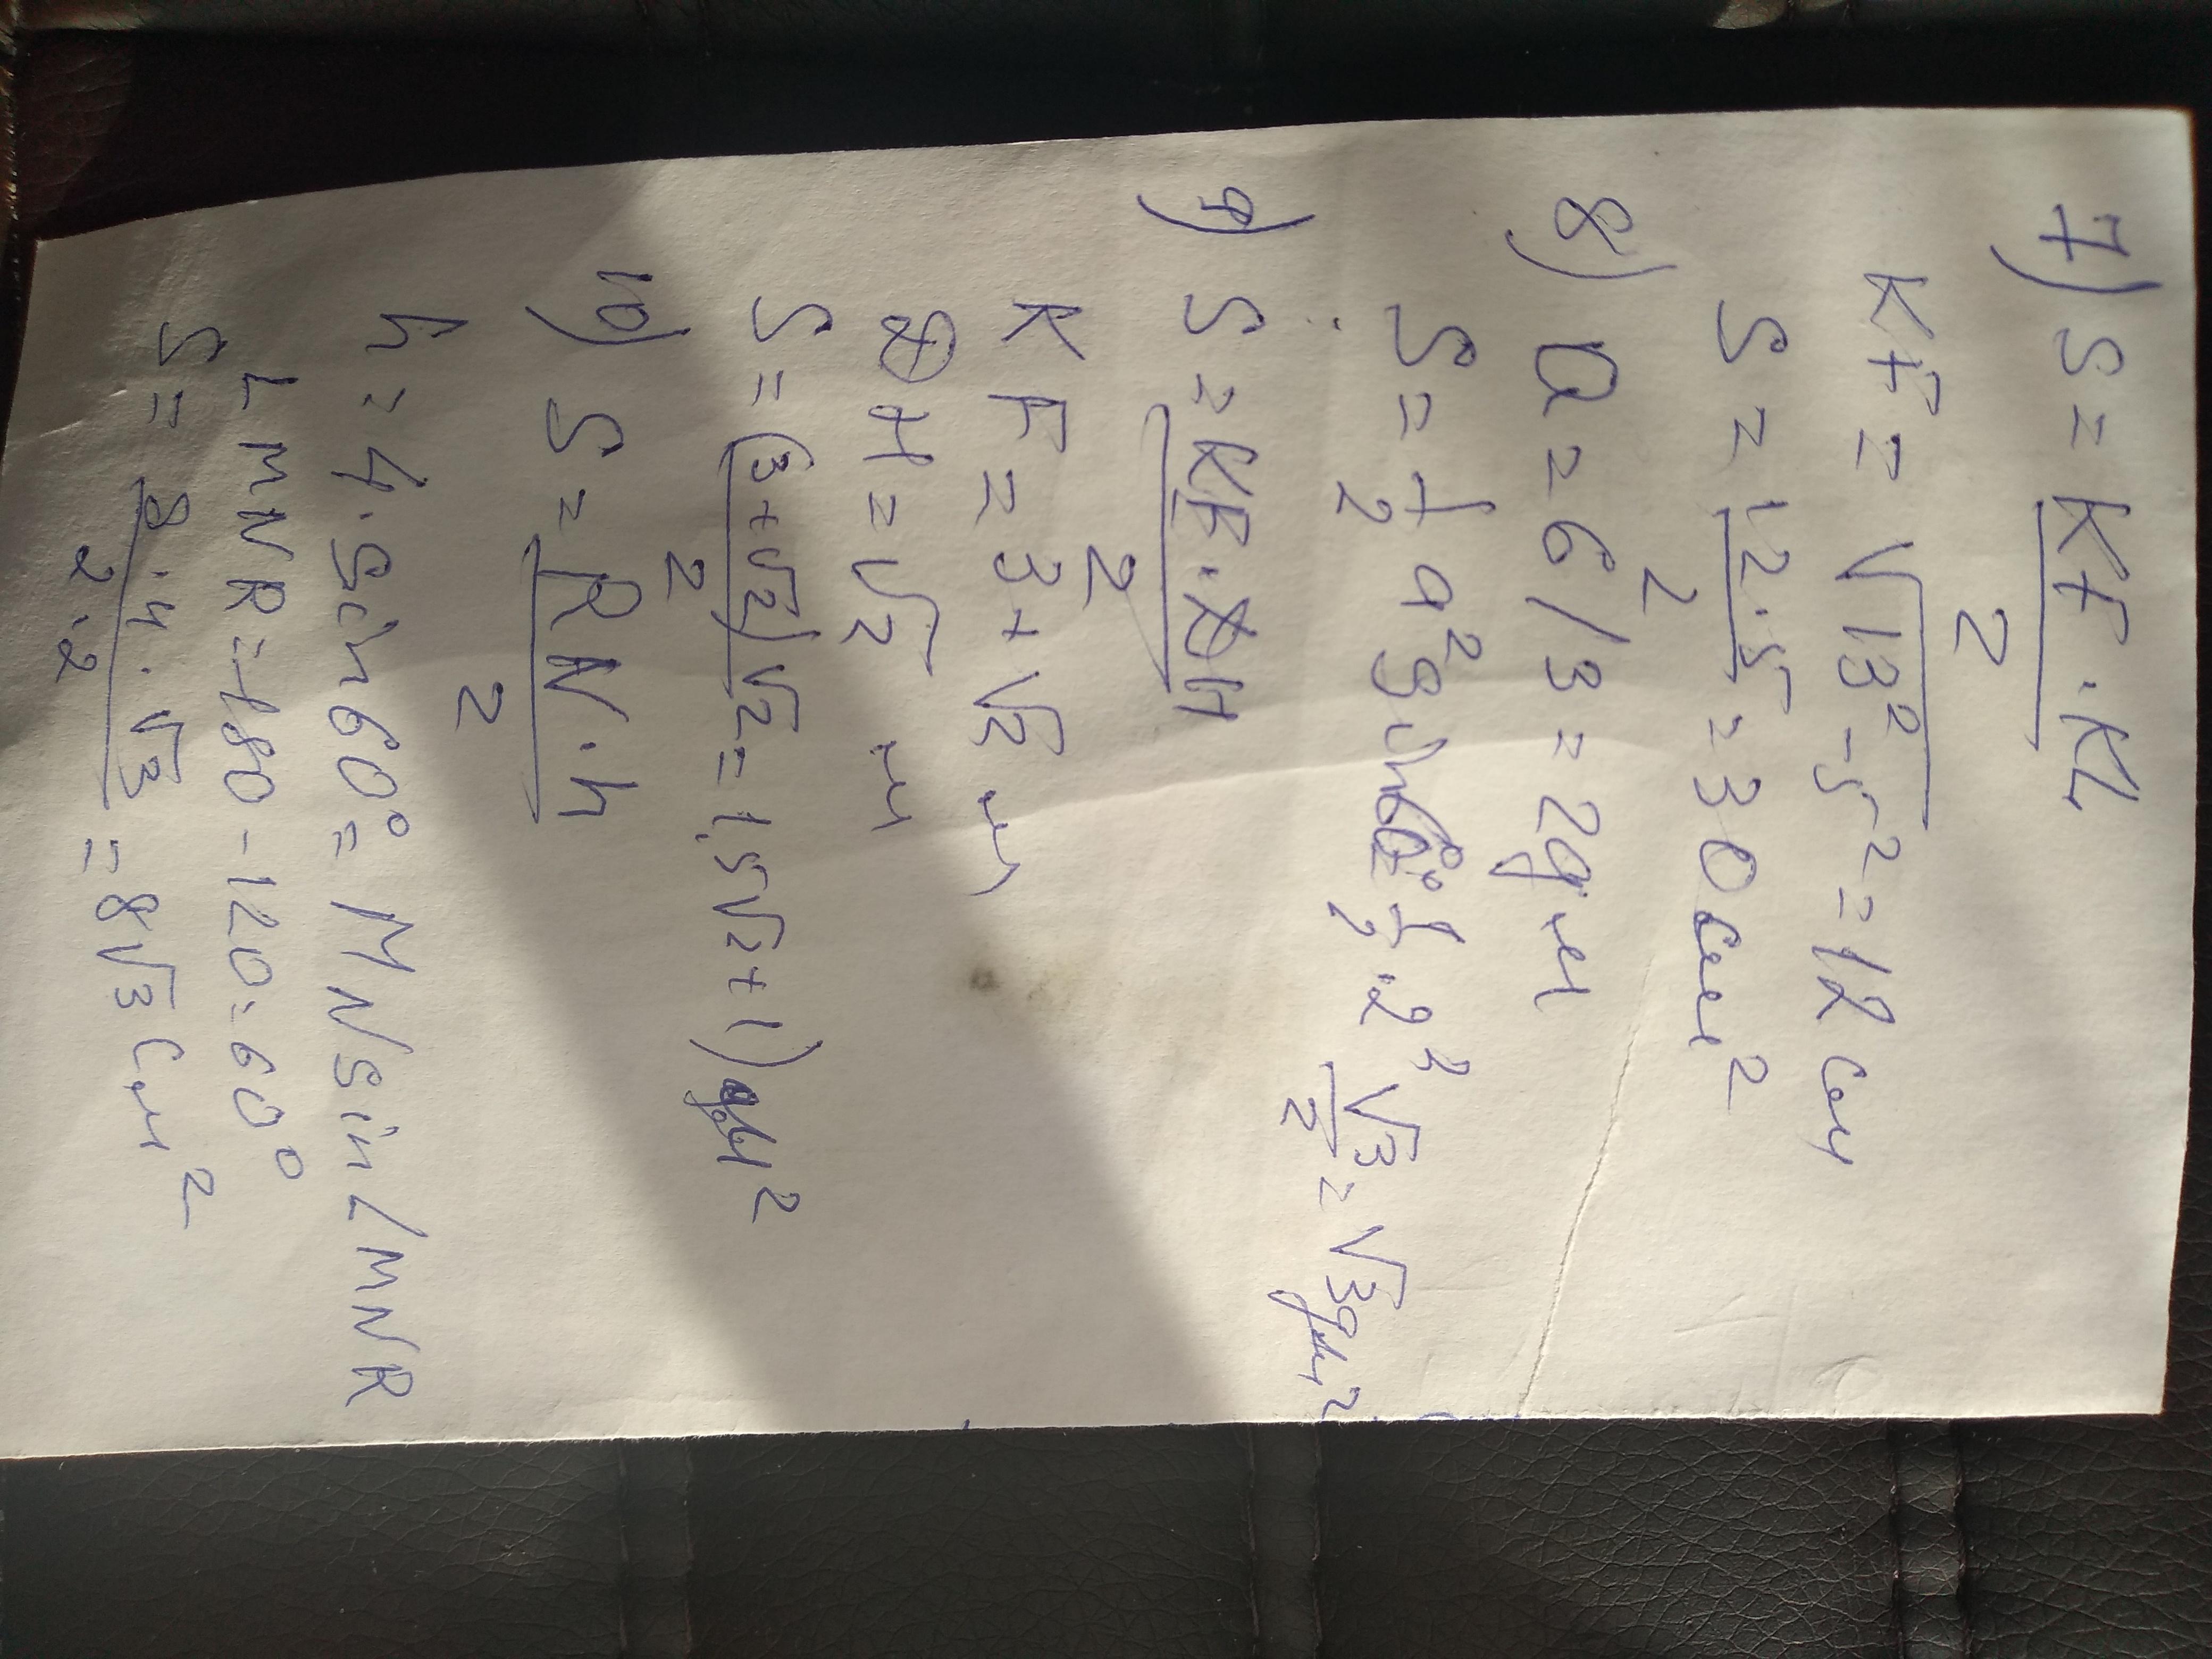 7) S = KF · KL / 2
KF = √13² - 5² = 12 см
S = 12 · 5 / 2 = 30 см²
8) a = 6/3 = 2дм
S = 1/2 a² sin60° = 1/2 · 2² √3/2 = √3 дм²
9) S = KF · DH / 2
KF = 3 + √2 м
DH = √2 м
S = (3 + √2)√2 / 2 = 1,5√2 + 1)
10) S = RN · h / 2
h = 4 · sin60° = MN sin ∠MNR
∠MNR = 180 - 120 = 60°
S = 8 · 4 · √3 / 2 · 2 = 8√3 см²